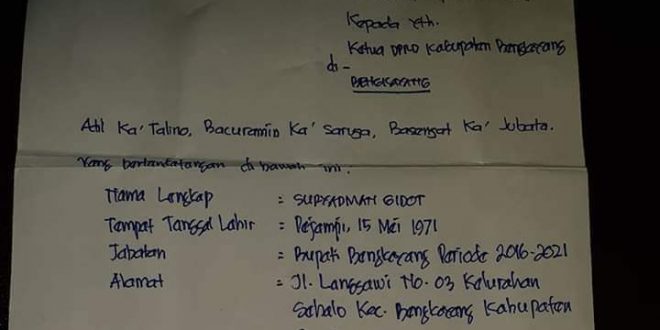 Kepada Yth.
Ketua DPRD Kabupaten Bengkayang
di -
BENGKAYANG
Adil Ka' Talino, Bacuramin Ka' Saruga, Basengat Ka' Jubata.
Yang bertandatangan di bawah ini.
Nama Lengkap : SURYADMAN GIDOT
Tempat Tanggal Lahir : Pejampi, 15 Mei 1971
Jabatan = Bupati Bengkayang Periode 2016-2021
Alamat = Jl. Langsawi No. 03 Kelurahan
Sebalo Kec. Bengkayang Kabupaten